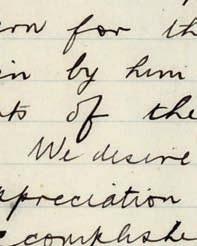 ern for th
in by him
nts of the
We desire
appreciation
complishe